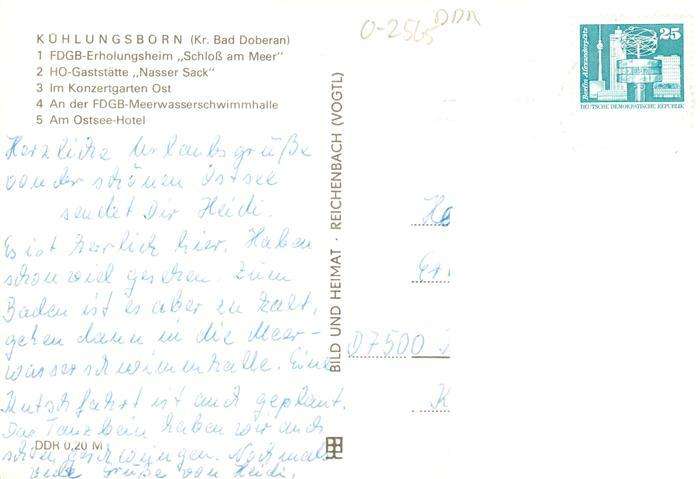 O-2565 DDR
KÜHLUNGSBORN (Kr. Bad Doberan)
1 FDGB-Erholungsheim „Schloß am Meer"
2 HO-Gaststätte „Nasser Sack"
3 Im Konzertgarten Ost
4 An der FDGB-Meerwasserschwimmhalle
5 Am Ostsee-Hotel
Herzliche Urlaubsgrüße
von der schönen Ostsee
sendet Dir Heidi.
Es ist herrlich hier. Haben
schon viel gesehen. Zum
Baden ist es aber zu kalt,
gehen dann in die Meer-
wasserschwimmhalle. Eine
Kutschfahrt ist auch geplant.
Das Tanzbein haben wir auch
schon geschwungen. Nochmals
viele Grüße von Heidi.
DDR 0,20 M
BILD UND HEIMAT · REICHENBACH (VOGTL)
Berlin, Alexanderplatz
25
DEUTSCHE DEMOKRATISCHE REPUBLIK
D7500